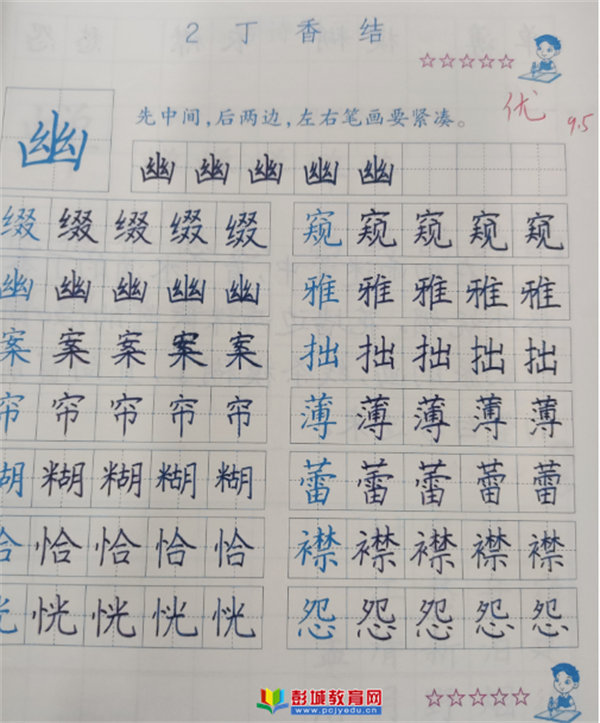 2 丁香结
☆☆☆☆☆
优 9.5
先中间,后两边,左右笔画要紧凑。
幽 幽 幽 幽 幽 幽
缀 缀 缀 缀 缀 窥 窥 窥 窥 窥
幽 幽 幽 幽 幽 雅 雅 雅 雅 雅
案 案 案 案 案 拙 拙 拙 拙 拙
帘 帘 帘 帘 帘 薄 薄 薄 薄 薄
糊 糊 糊 糊 糊 蕾 蕾 蕾 蕾 蕾
恰 恰 恰 恰 恰 襟 襟 襟 襟 襟
恍 恍 恍 恍 恍 怨 怨 怨 怨 怨
☆☆☆☆☆
彭城教育网
www.pcjyedu.cn